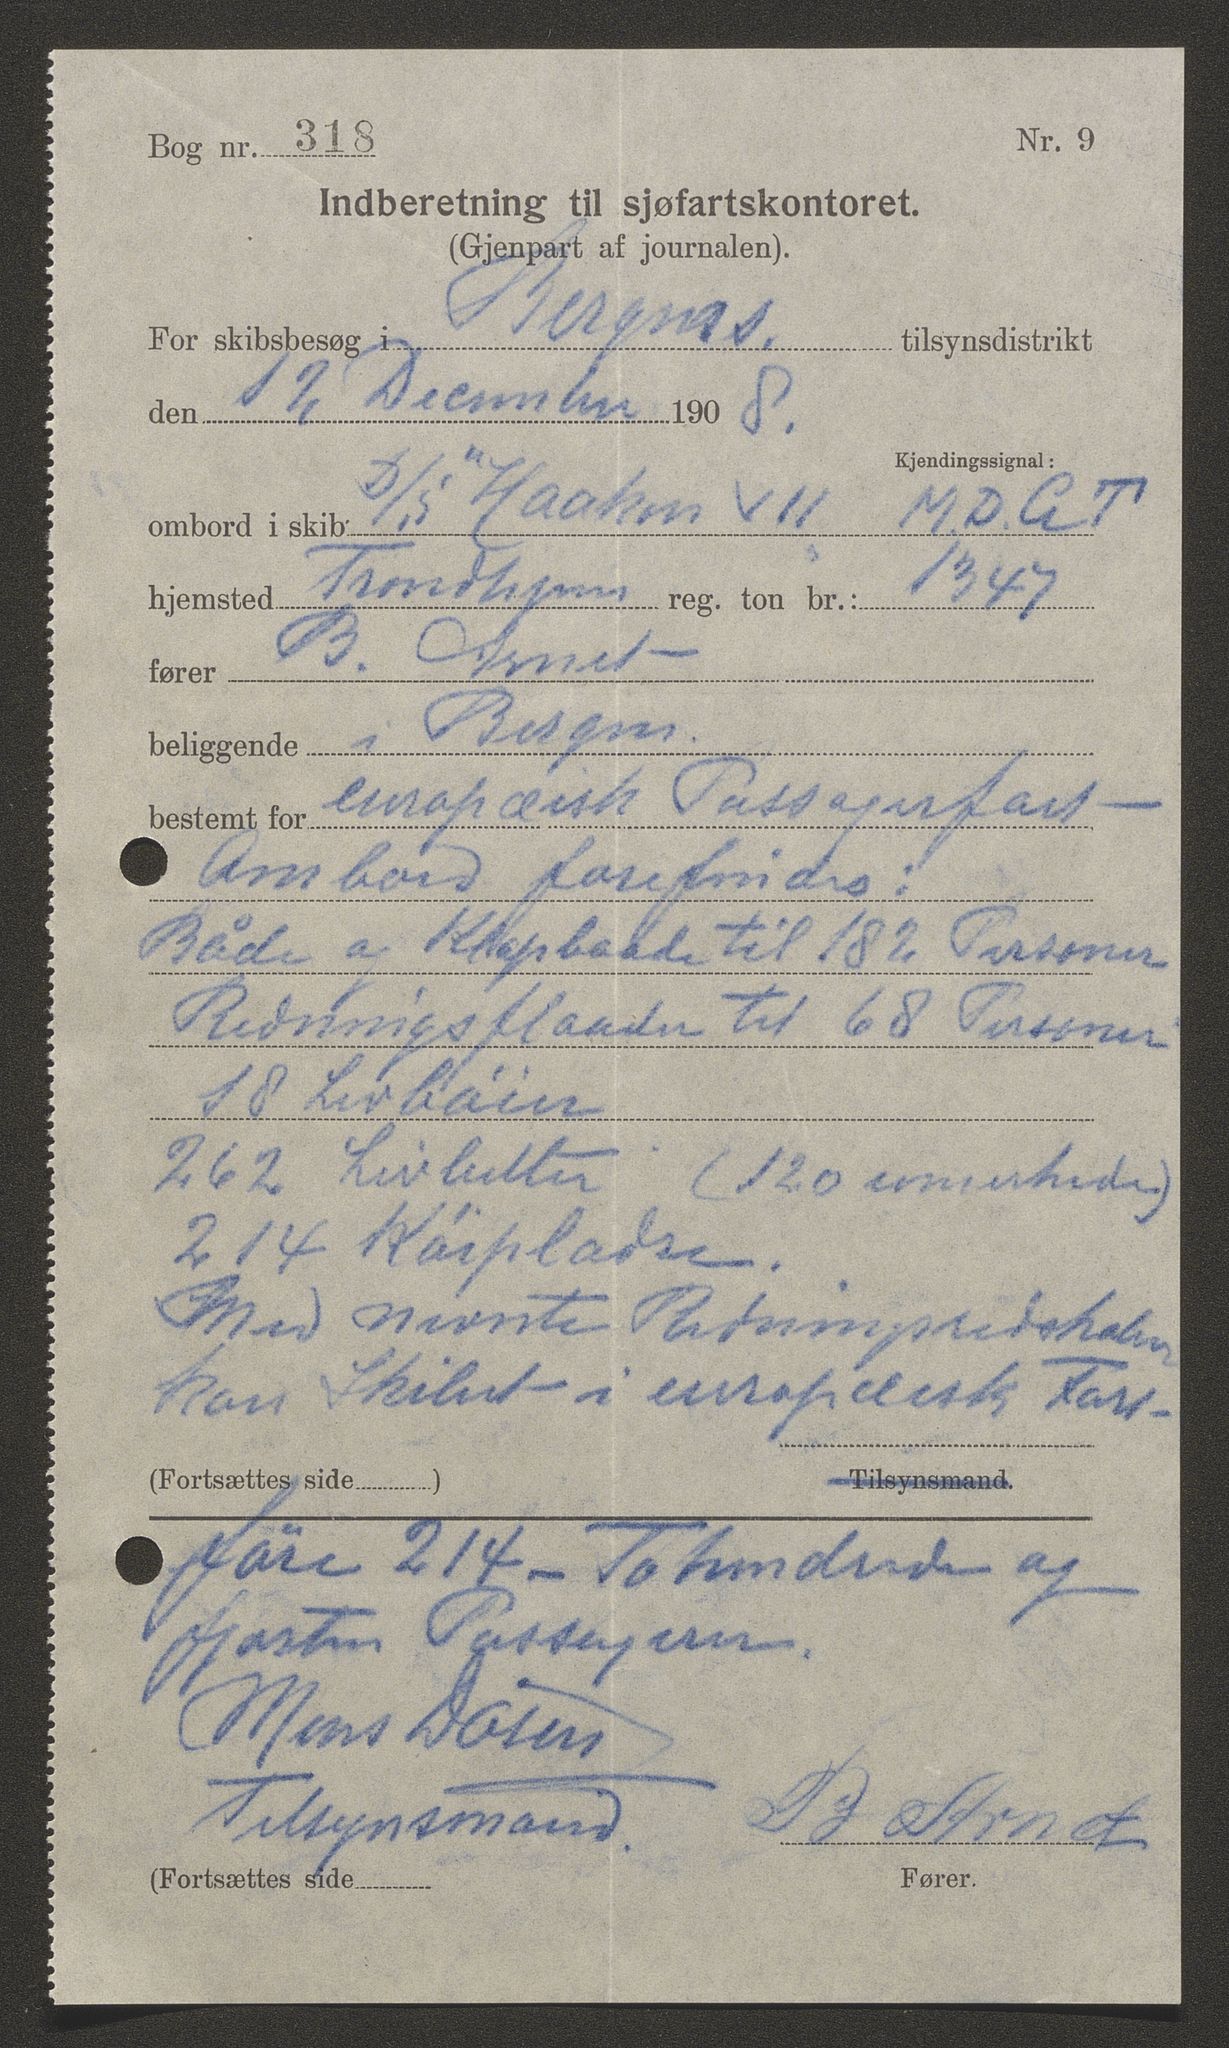 Bog nr. 318 Nr. 9
Indberetning til sjøfartskontoret.
(Gjenpart af journalen).
For skibsbesøg i Bergens. tilsynsdistrikt
den 12 December 1908.
Kjendingssignal:
ombord i skib D/S "Haakon VII" M.D.G.T
hjemsted Trondhjem reg. ton br.: 1347
fører B. Arnet
beliggende i Bergen.
bestemt for europæisk Passagerfart
Ombord forefindes:
Både og Klapbaade til 182 Personer
Redningsflaader til 68 Personer
18 Livböier
262 Livbelter (120 umerkede)
214 Köipladse.
Med nevnte Redningsredskaber
kan Skibet i europæisk Fart
(Fortsættes side )
Tilsynsmand.
före 214 - Tohundrede og
fjorten Passagerer.
Mons Dösen
Tilsynsmand. B Arnet
(Fortsættes side Fører.